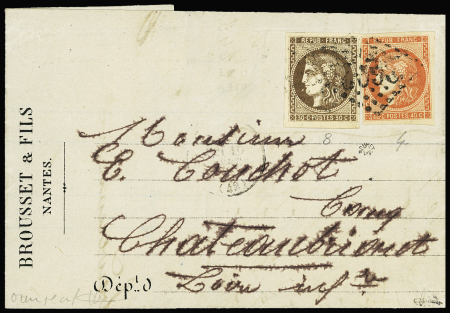 BROUSSET & FILS
NANTES.
REPUB. FRANC.
30 C POSTES 30 C
REPUB. FRANC.
40 C POSTES 40 C
8
4
Monsieur
E. Couchot
Chateaubriant
Dép.t d
Loire inf.re